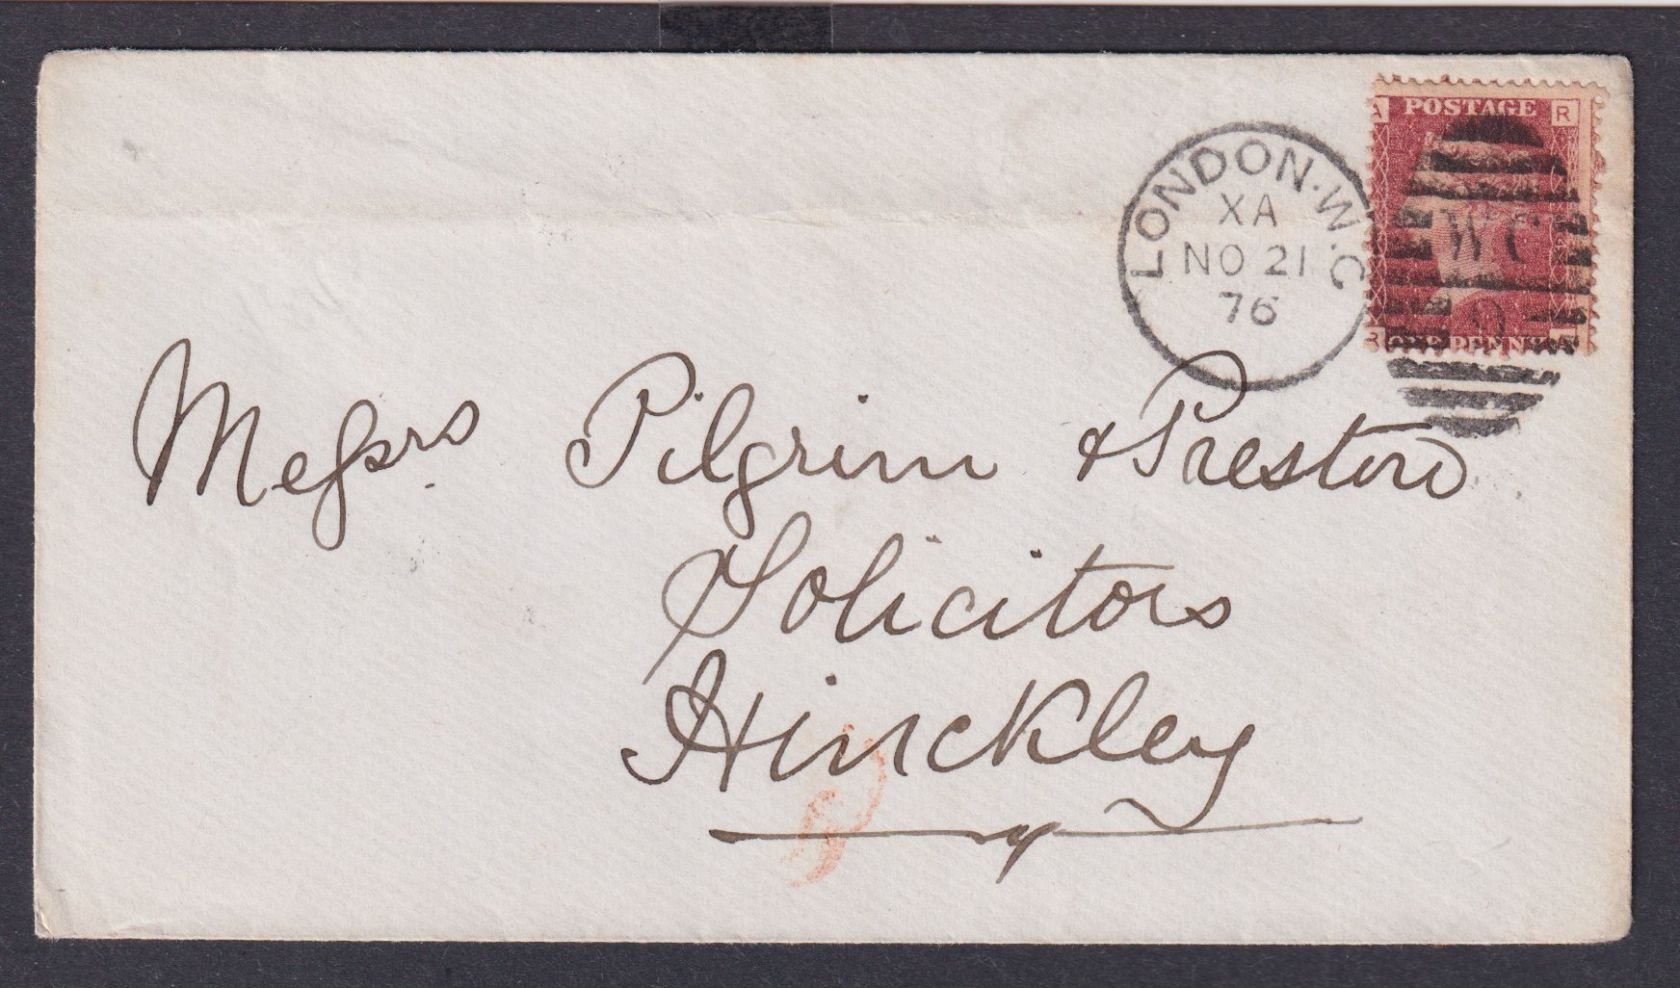 A POSTAGE R
LONDON·W.C
XA
NO 21
76
W C
9
R ONE PENNY A
Messrs Pilgrim & Preston
Solicitors
Hinckley